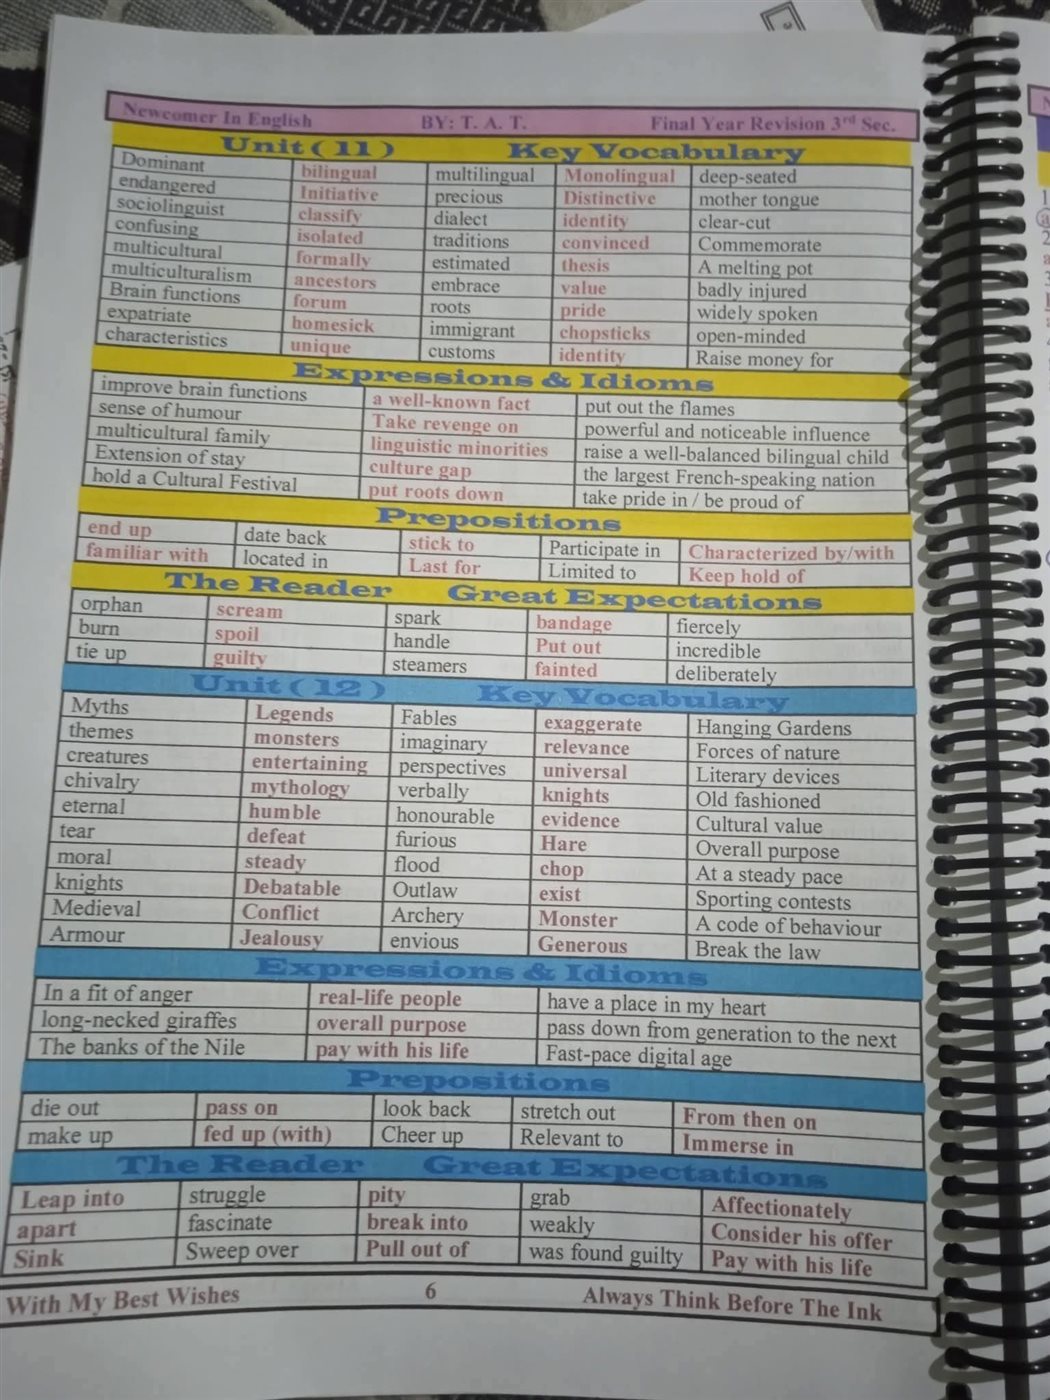 Newcomer In English BY: T. A. T. Final Year Revision 3rd Sec.
Unit ( 11 ) Key Vocabulary
Dominant bilingual multilingual Monolingual deep-seated
endangered Initiative precious Distinctive mother tongue
sociolinguist classify dialect identity clear-cut
confusing isolated traditions convinced Commemorate
multicultural formally estimated thesis A melting pot
multiculturalism ancestors embrace value badly injured
Brain functions forum roots pride widely spoken
expatriate homesick immigrant chopsticks open-minded
characteristics unique customs identity Raise money for
Expressions & Idioms
improve brain functions a well-known fact put out the flames
sense of humour Take revenge on powerful and noticeable influence
multicultural family linguistic minorities raise a well-balanced bilingual child
Extension of stay culture gap the largest French-speaking nation
hold a Cultural Festival put roots down take pride in / be proud of
Prepositions
end up date back stick to Participate in Characterized by/with
familiar with located in Last for Limited to Keep hold of
The Reader Great Expectations
orphan scream spark bandage fiercely
burn spoil handle Put out incredible
tie up guilty steamers fainted deliberately
Unit ( 12 ) Key Vocabulary
Myths Legends Fables exaggerate Hanging Gardens
themes monsters imaginary relevance Forces of nature
creatures entertaining perspectives universal Literary devices
chivalry mythology verbally knights Old fashioned
eternal humble honourable evidence Cultural value
tear defeat furious Hare Overall purpose
moral steady flood chop At a steady pace
knights Debatable Outlaw exist Sporting contests
Medieval Conflict Archery Monster A code of behaviour
Armour Jealousy envious Generous Break the law
Expressions & Idioms
In a fit of anger real-life people have a place in my heart
long-necked giraffes overall purpose pass down from generation to the next
The banks of the Nile pay with his life Fast-pace digital age
Prepositions
die out pass on look back stretch out From then on
make up fed up (with) Cheer up Relevant to Immerse in
The Reader Great Expectations
Leap into struggle pity grab Affectionately
apart fascinate break into weakly Consider his offer
Sink Sweep over Pull out of was found guilty Pay with his life
With My Best Wishes 6 Always Think Before The Ink